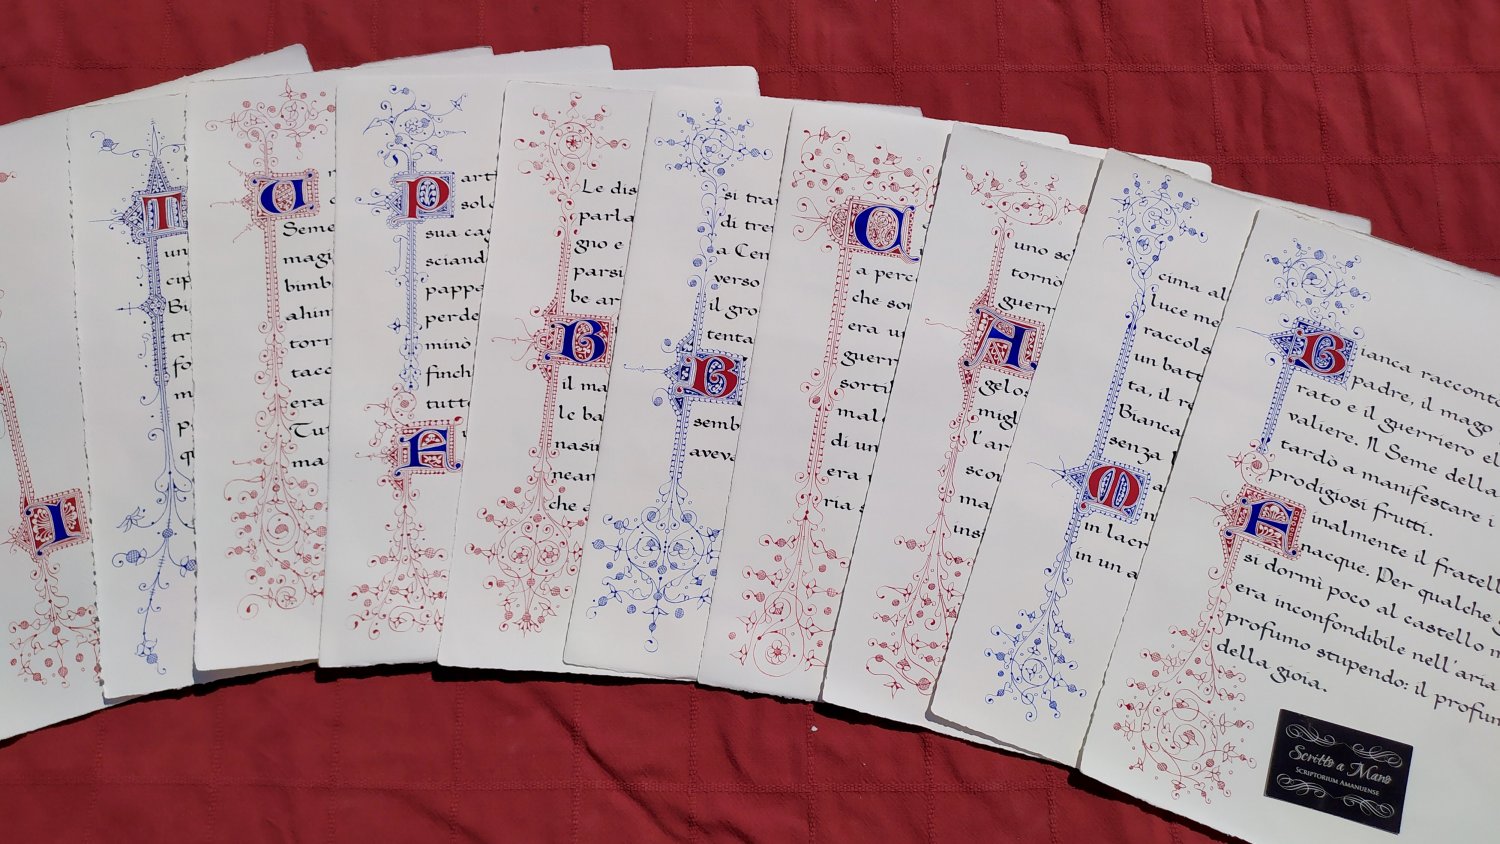 I
T
un
cip
Bi
tr
fo
m
p
q
U
Seme
magi
bimb
ahim
torr
tacc
era
Tut
ma
Parti
sole
sua cag
sciand
pappa
perde
minò
finch
tutte
F
Le dis
parla
gno e
parsi
be ar
B
il ma
le ba
nasin
nean
che
si tra
di tre
a Cen
verso
il gro
tenta
B
semb
avev
C
a perc
che so
era u
guerr
sortil
mal
di un
era
ria s
uno sc
tornò
guerr
A
gelos
migl
l'ar
scon
ma
ins
cima al
luce me
raccols
un batt
ta, il re
Bianca
senza l
Ma
in lacr
in un a
Bianca raccont
padre, il mago
rato e il guerriero el
valiere. Il Seme della
tardò a manifestare i
prodigiosi frutti.
Finalmente il fratell
nacque. Per qualche
si dormì poco al castello m
era inconfondibile nell'aria
profumo stupendo: il profum
della gioia.
Scritto a Mano
Scriptorium Amanuense